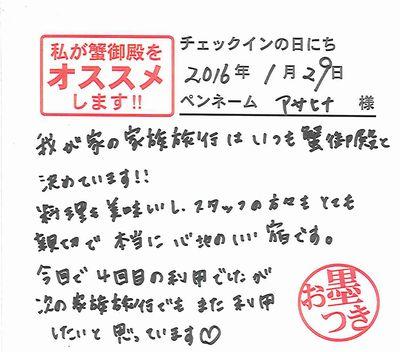 私が蟹御殿を
オススメ
します!!
チェックインの日にち
2016年 1月29日
ペンネーム アサヒナ 様
我が家の家族旅行はいつも蟹御殿と
決めています!!
料理も美味いし、スタッフの方々もとても
親切で本当に心地のいい宿です。
今回で4回目の利用でしたが
次の家族旅行でもまた利用
したいと思っています♡
お墨つき